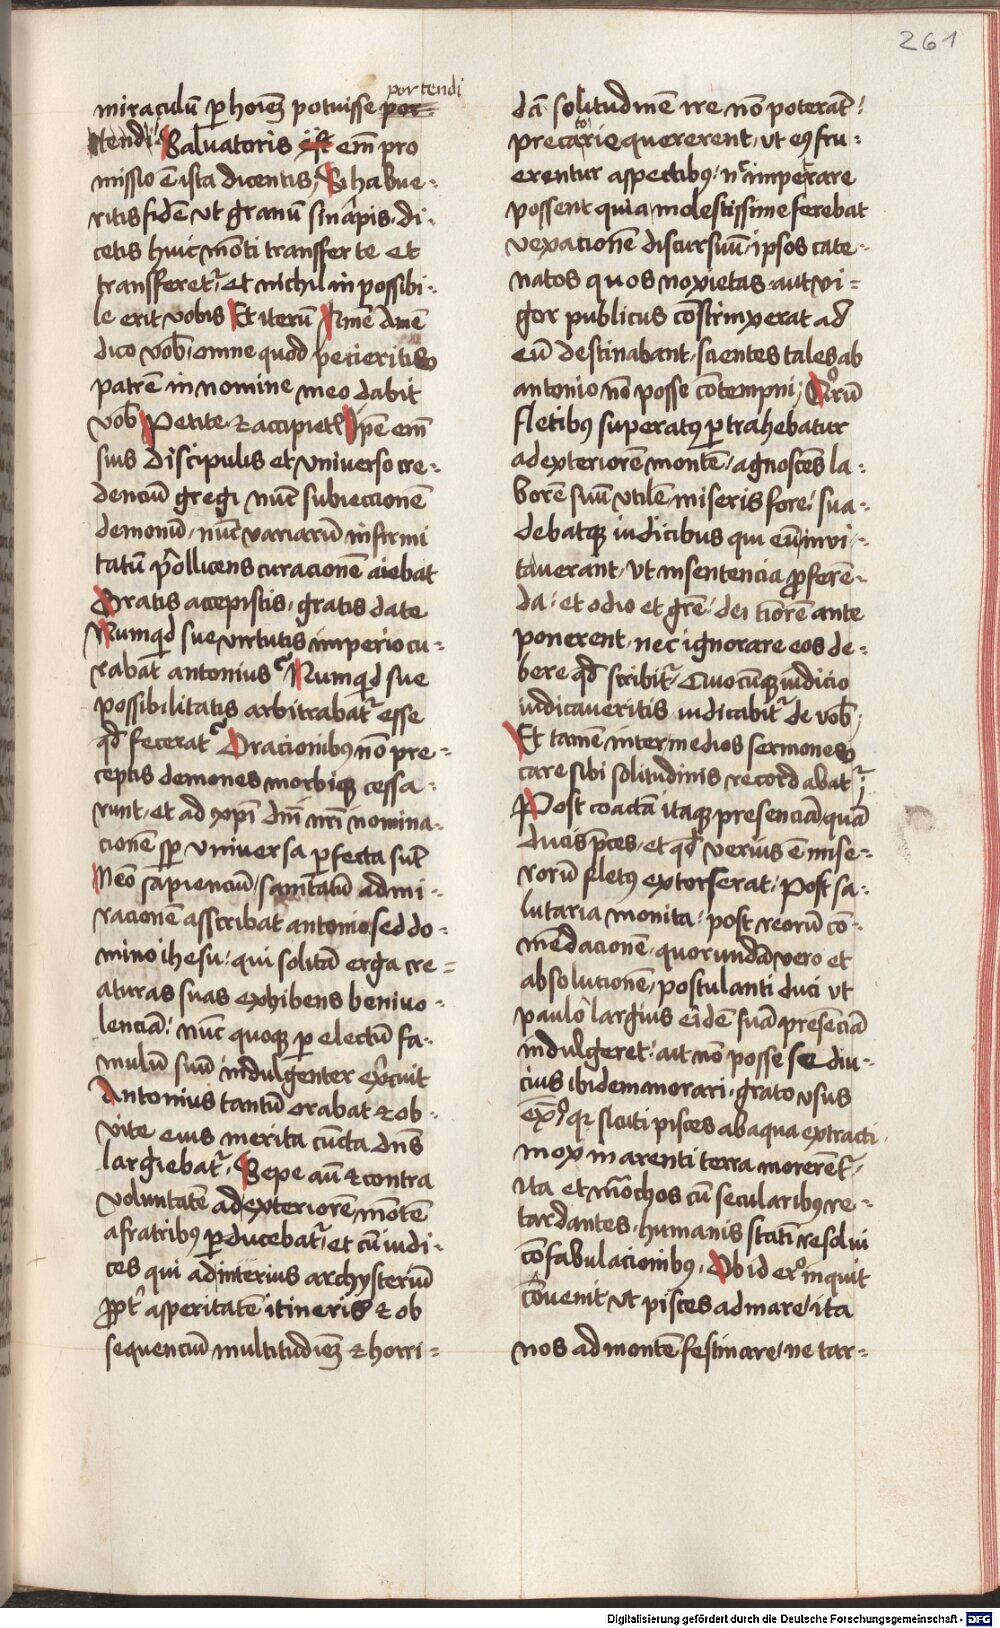 261
portendi
miraculū ꝑ hoiēȝ potuisse por
tendi Saluatoris ist em̄ pro
missio ē ista dicentis, Si habue-
ritis fidē ut granū sinapis. di-
cetis huic mōti transfer te et
transferetᷣ, et nichil inpossibi-
le erit vobis Et iterū Amē Amē
dico vob̄, omne quod pecieritis
patrē in nomine meo dabit
vob̄ Petite ⁊ accipietꝭ Ipē em̄
suis discipulis et vniuerso cre-
denciū gregi nūc subieccionē
demonū, nūc variarū infirmi
tatū pollicens curacionē aiebat
Gratis accepistis, gratis date
Numqͥd sue virtutis imperio cu-
rabat antonius Numqͥd sue
possibilitatis arbitrabatᷣ esse
qd̄ fecerat Oracionibꝰ nō pre-
ceptis demones morbiqꝫ cessa-
runt, et ad xp̄i dn̄i nr̄i nomina-
cionē sꝑ vniuersa ꝑfecta sūt
Nēo sapienciū, sanitatū admi-
racionē asscribat antonio, sed do-
mino ihesu, qui solitā erga cre-
aturas suas exhibens beniuo-
lenciā, nūc quoqꝫ ꝑ electū fa-
mulū suū indulgenter exercuit
Antonius tantū orabat ⁊ ob
vite eius merita cūcta dn̄s
largiebatᷣ, Sepe aū ⁊ contra
voluntatē ad exteriorē mōtē
a fratribꝰ ꝑducebatᷣ, et cū iudi-
ces qui ad interius archysteriū
ꝓptͥ asperitatē itineris ⁊ ob
sequenciū multitudiēȝ ⁊ horri-
dā solitudinē ire nō poterāt,
to
precario quererent, ut eꝰ fru-
erentur aspectibꝰ, nͣ imperare
possent quia molestissime ferebat
vexacionē discursuū, ipsos cate-
natos quos noxietas aut vi-
gor publicus cōstrinxerat ad
eū destinabant, scientes tales ab
antonio nō posse cōtempni, Quorū
fletibꝰ superatꝰ ꝑtrahebatur
ad exteriorē montē, agnoscēs la-
borē suū vtilē miseris fore, sua-
debatqꝫ iudicibus qui eū inui-
tauerant, ut in sentencia ꝓferē-
da, et odio et grē, dei tiorē ante
ponerent, nec ignorare eos de-
bere qd̄ scribitᷣ, Quocūqꝫ iudicio
iudicaueritis iudicabitᷣ de vob̄,
Et tamē inter medios sermones
care sibi solitudinis recordabatᷣ,
Post coactā itaqꝫ presenciā, quā
ducis pͤces, et qd̄ verius ē mise-
rorū fletꝰ extorserat, Post sa-
lutaria monita, post reorū cō-
mēdacionē, quorundā vero et
absolucionē, postulanti duci ut
paulo largius eidē suā presenciā
indulgeret, ait nō posse se diu-
cius ibidem morari, grato usus
exº, qꝛ sicuti pisces ab aqua extracti
mox in arenti terra morerētᷣ,
ita et mōchos cū secularibꝰ re-
tardantes, humanis statī resolui
cōfabulacionibꝰ, Ob id ergo inquit
cōuenit ut pisces ad mare, ita
nos ad montē festinare, ne tar-
Digitalisierung gefördert durch die Deutsche Forschungsgemeinschaft - DFG